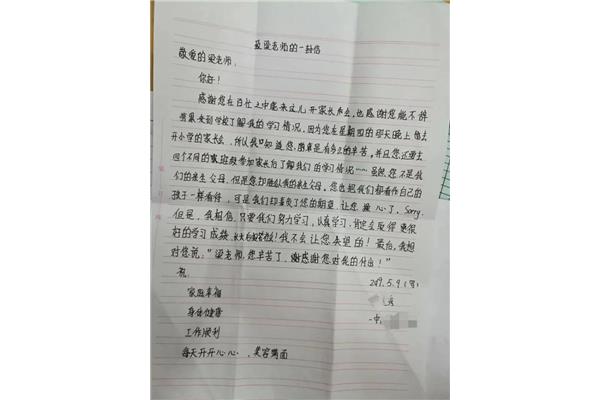 致梁老师的一封信
敬爱的梁老师：
你好！
感谢您在百忙之中能来这儿开家长会，也感谢您能不辞
劳累来到学校了解我的学习情况，因为您在星期四的那天晚上 去
开小学的家长会，所以我知道您 有多么的辛苦。并且您还要去
四个不同的 班级参加家长会了解我们的学习情况……虽然您不是我
们的亲生父母，但是您却胜似我的亲生父母。您也把我们都看作自己的
孩子一样看待，可是我们却辜负了您的期望，让您 心了，Sorry.
但是，我相信，只要我们努力学习，认真学习，肯定会取得更很
好的学习成绩， 我不会让您失望的！最后，我想
对您说："梁老师，您辛苦了，谢感谢您对我的付出！"
祝：
2019.5.9(四)
家庭幸福
身体健康
一中
工作顺利
每天开开心心，笑容满面